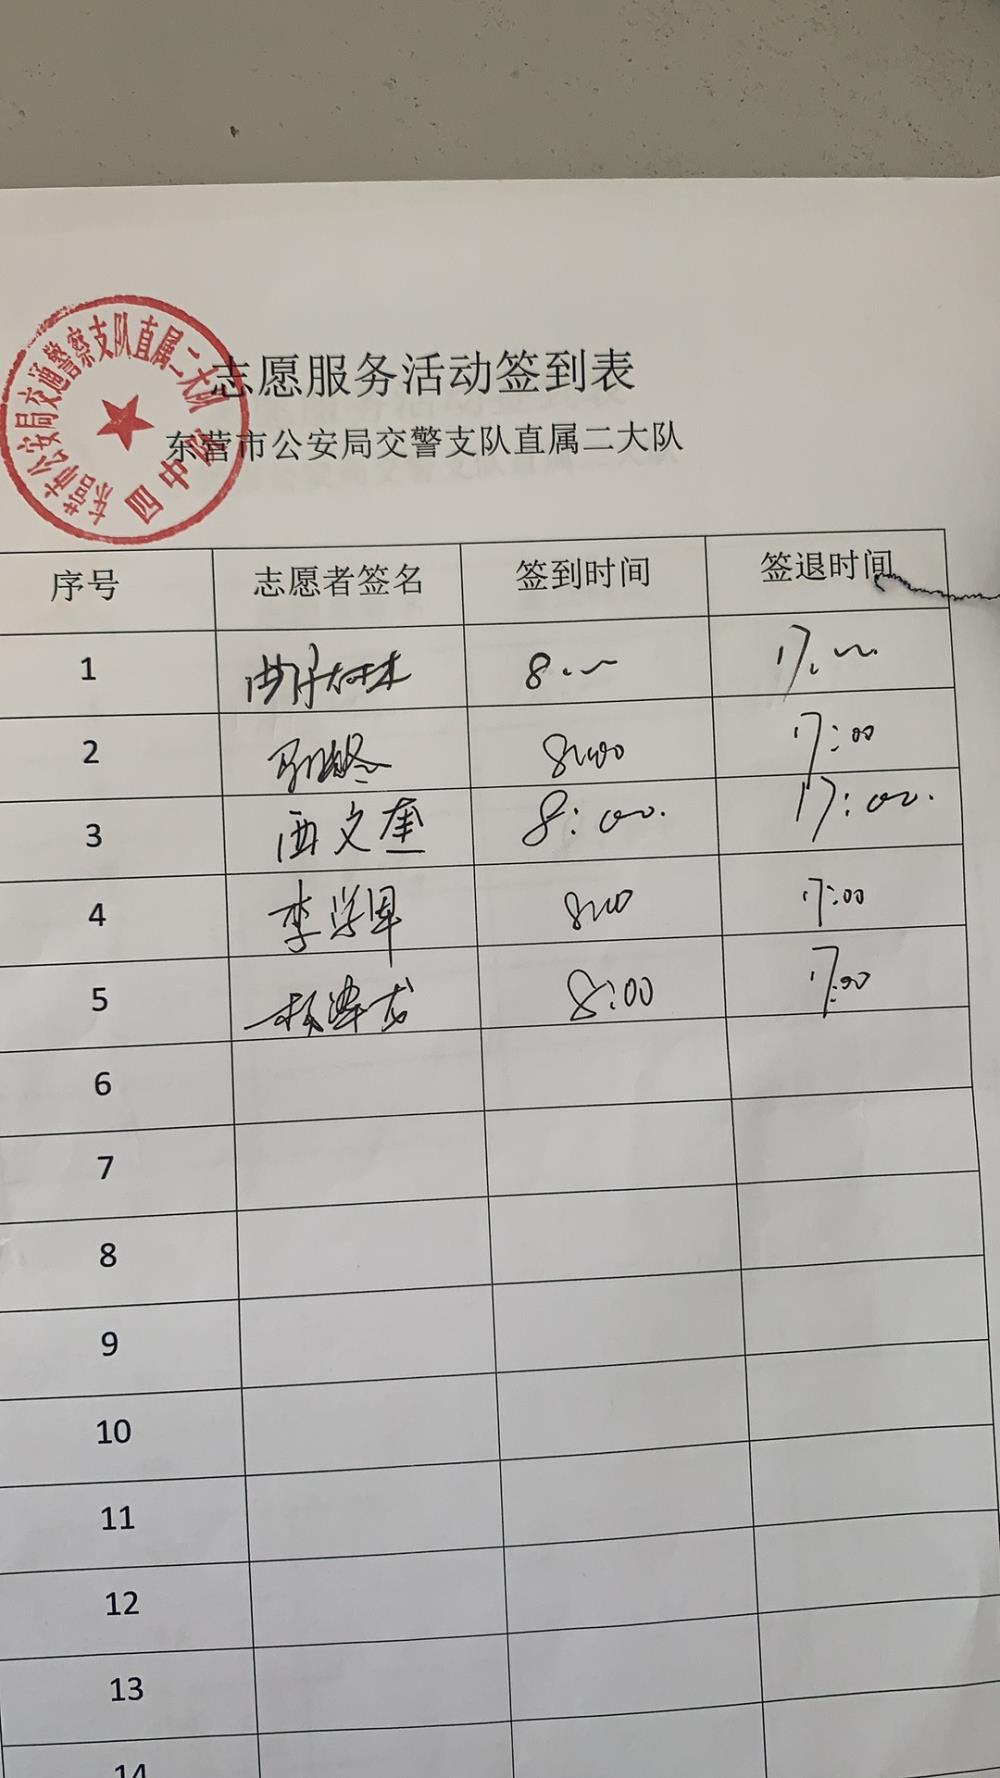 东营市公安局交通警察支队直属二大队
四中队
志愿服务活动签到表
东营市公安局交警支队直属二大队
序号 志愿者签名 签到时间 签退时间
1 8:00 17:00
2 8:00 17:00
3 西文奎 8:00. 17:00.
4 李学军 8:00 17:00
5 8:00 17:00
6
7
8
9
10
11
12
13
14